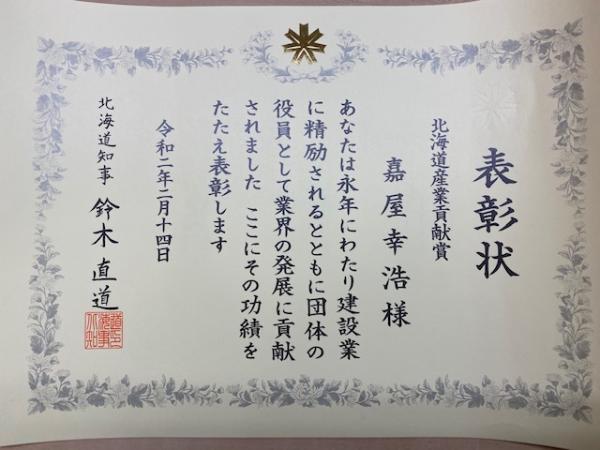 表彰状
北海道産業貢献賞
嘉屋幸浩様
あなたは永年にわたり建設業
に精励されるとともに団体の
役員として業界の発展に貢献
されました ここにその功績を
たたえ表彰します
令和二年二月十四日
北海道知事 鈴木直道